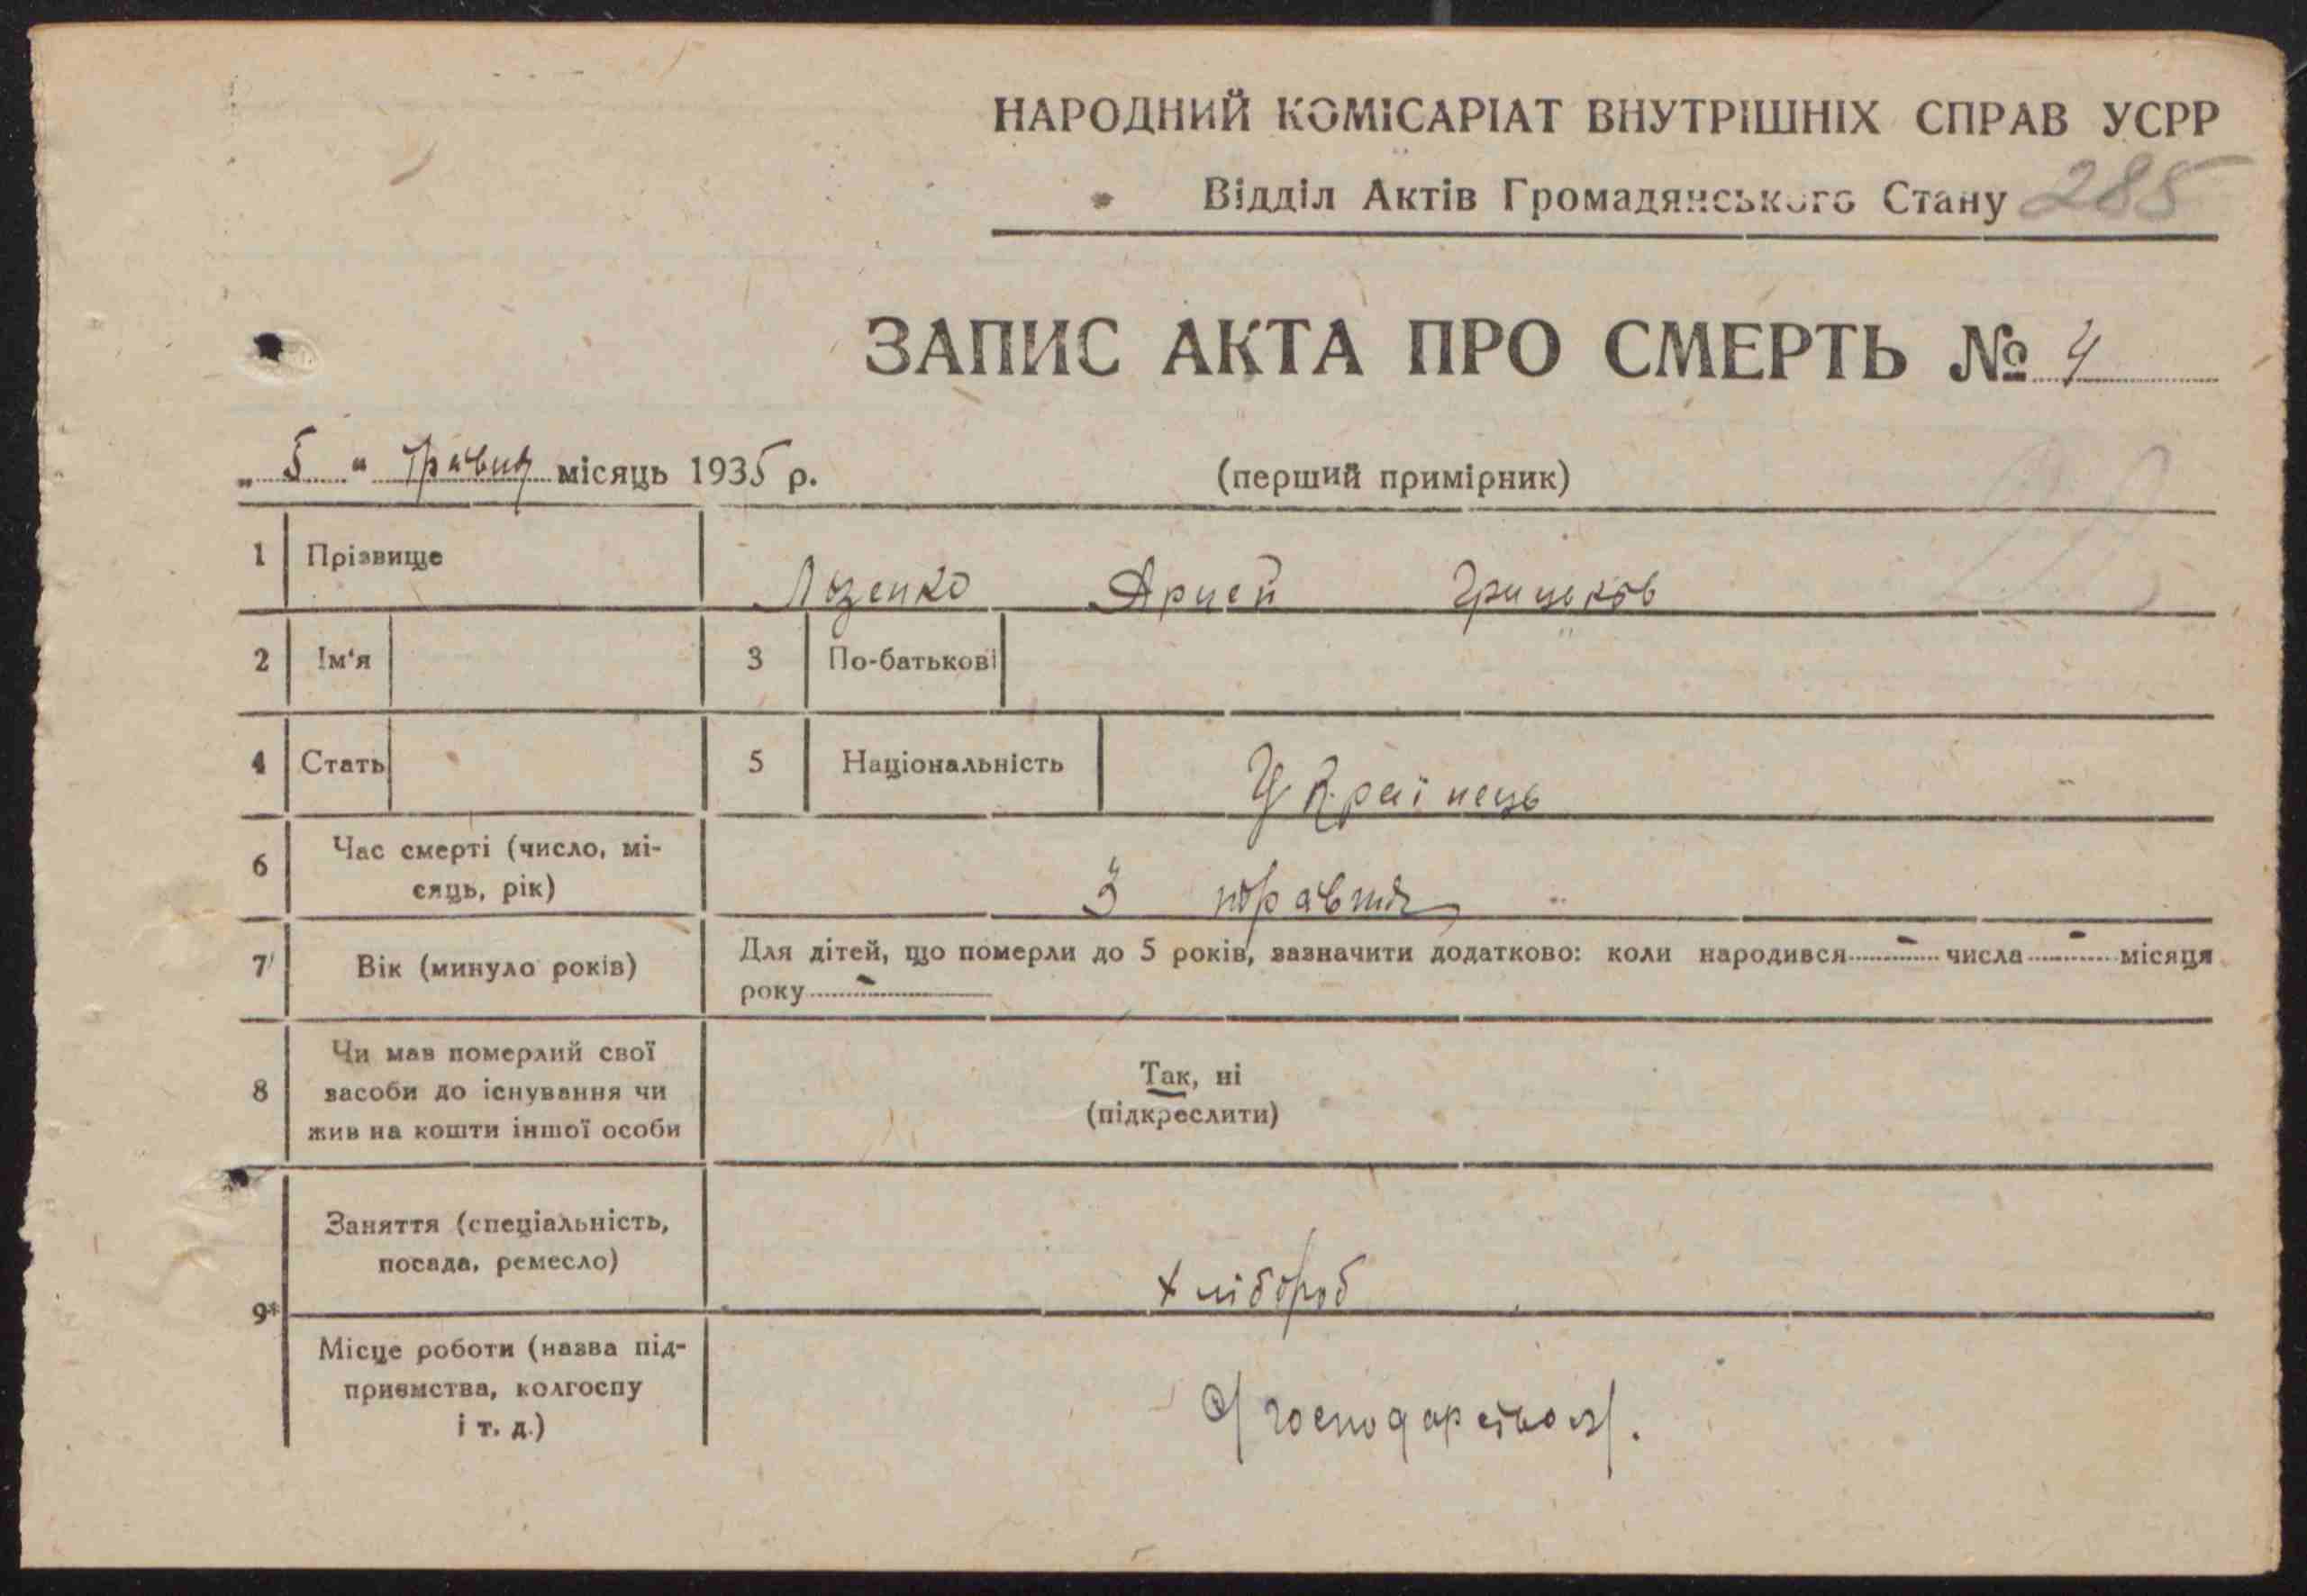 НАРОДНИЙ КОМІСАРІАТ ВНУТРІШНІХ СПРАВ УСРР
Відділ Актів Громадянського Стану 285
ЗАПИС АКТА ПРО СМЕРТЬ № 4
„ 5 " травня місяць 1935 р. (перший примірник)
1 Прізвище
2 Ім'я 3 По-батькові
4 Стать 5 Національність Українець
6 Час смерті (число, мі-
сяць, рік) 3 травня
7 Вік (минуло років) Для дітей, що померли до 5 років, зазначити додатково: коли народився - числа - місяця
року -
8 Чи мав померлий свої
засоби до існування чи
жив на кошти іншої особи
Так, ні
(підкреслити)
9* Заняття (спеціальність,
посада, ремесло) хлібороб
Місце роботи (назва під-
приємства, колгоспу
і т. д.)